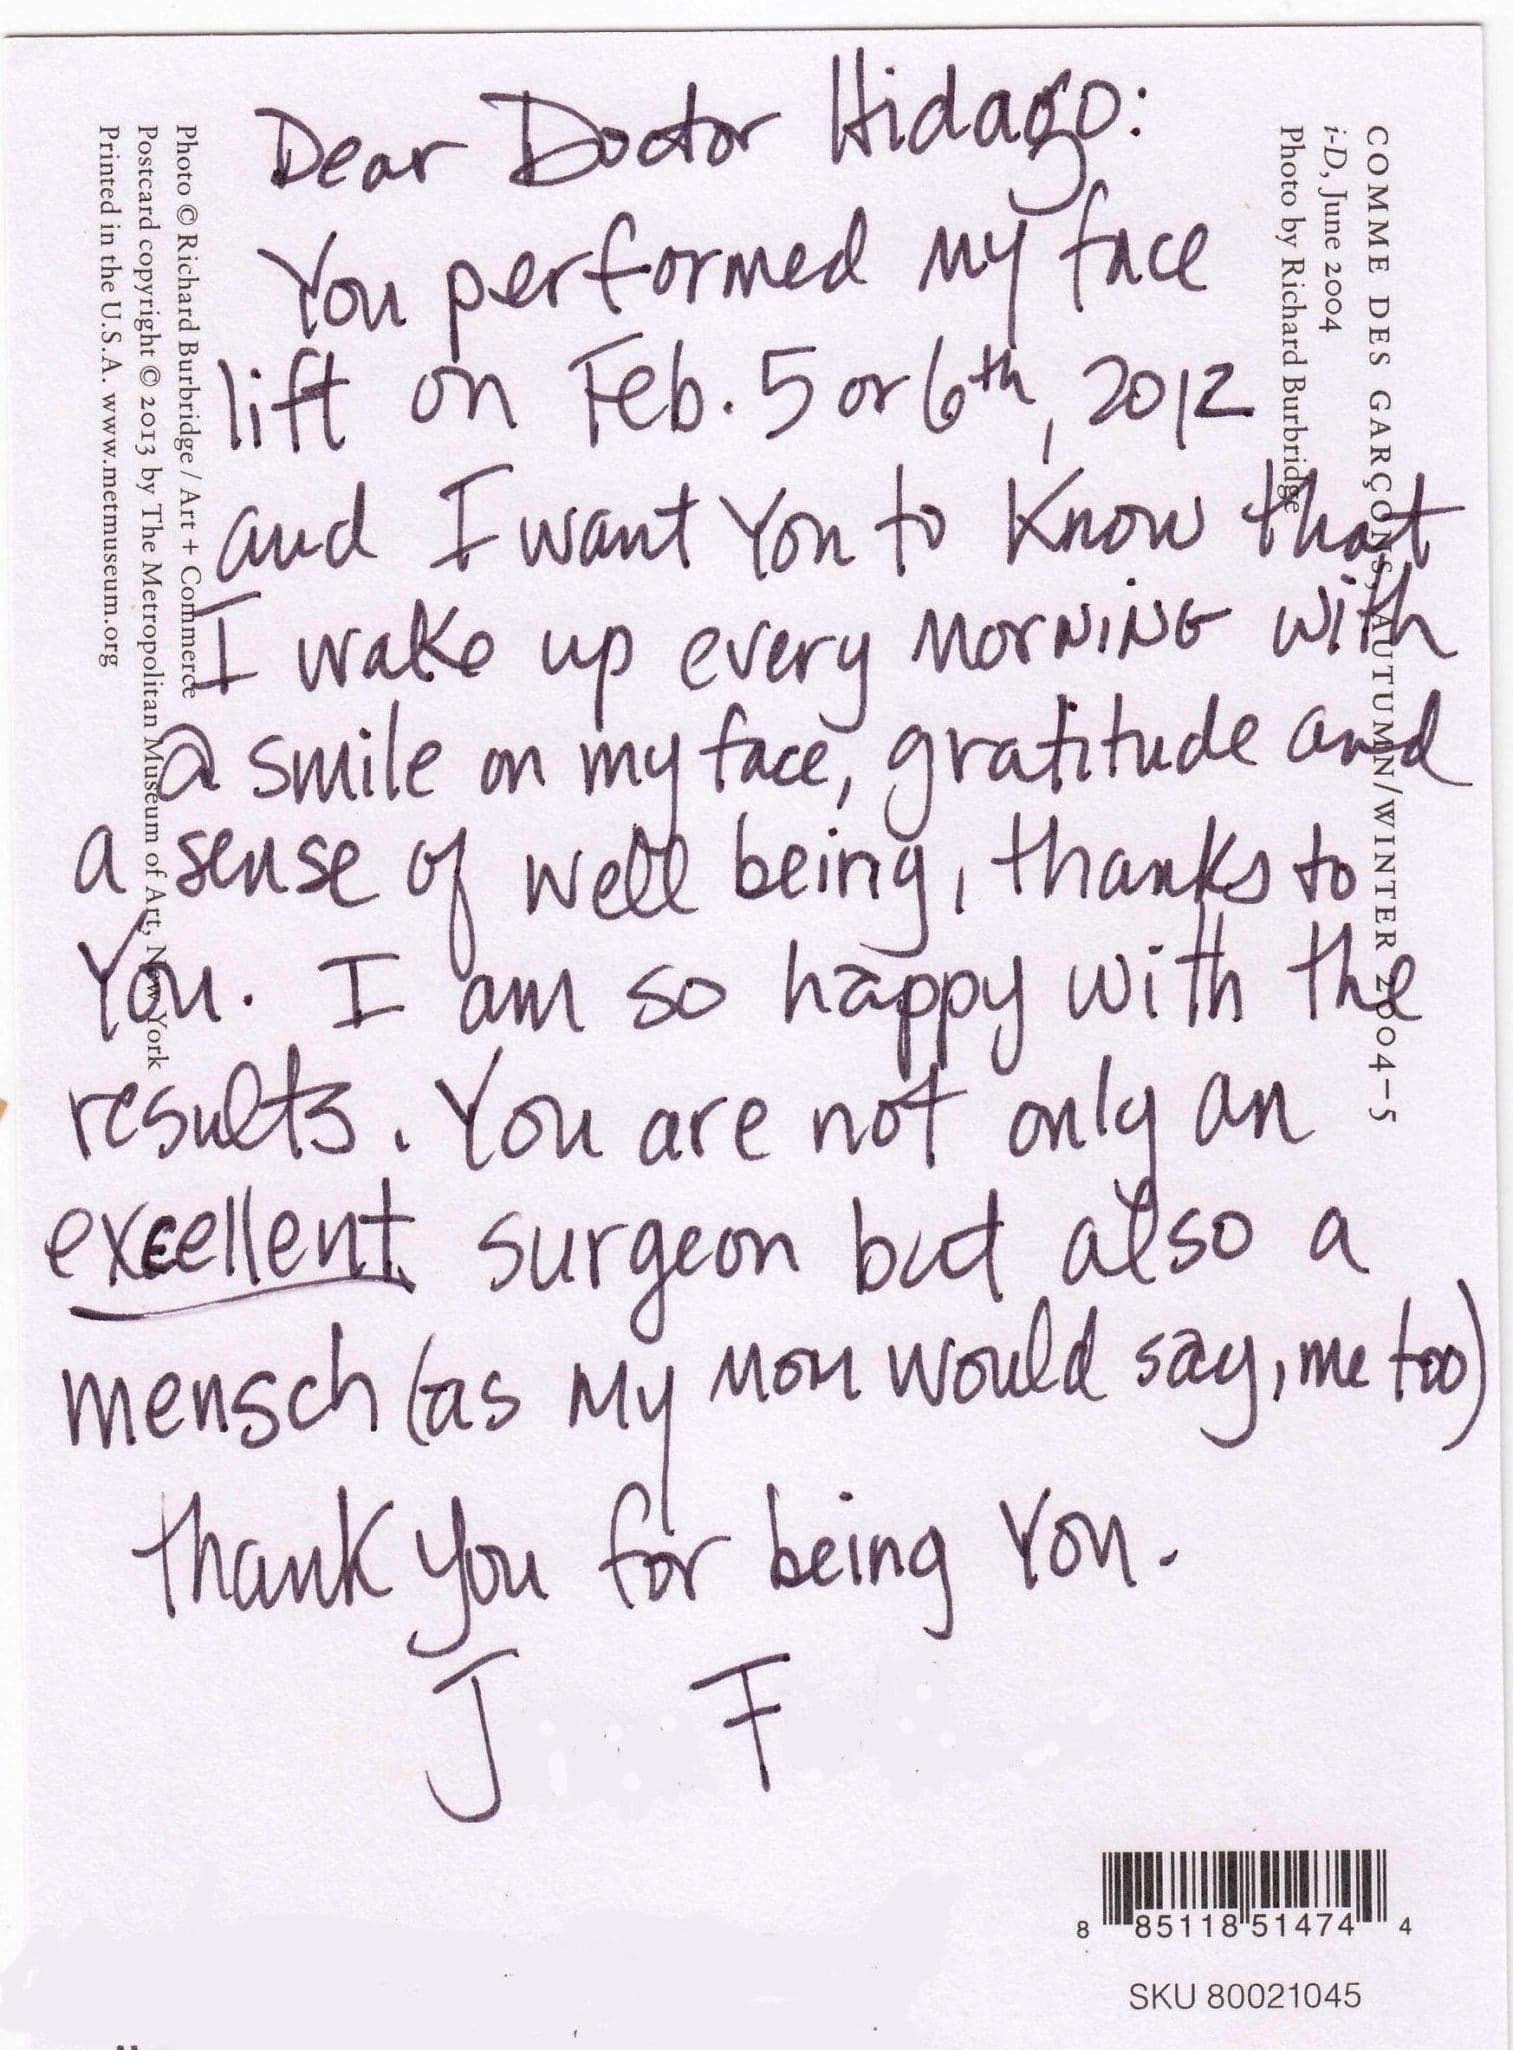 Dear Doctor Hidago:
You performed my face
lift on Feb. 5 or 6th, 2012
and I want You to Know that
I wake up every morning with
a smile on my face, gratitude and
a sense of well being, thanks to
You. I am so happy with the
results. You are not only an
excellent surgeon but also a
mensch (as my mom would say, me too)
thank you for being You.
J F
COMME DES GARÇONS, AUTUMN/WINTER 2004–5
i-D, June 2004
Photo by Richard Burbridge
Photo © Richard Burbridge / Art + Commerce
Postcard copyright © 2013 by The Metropolitan Museum of Art, New York
Printed in the U.S.A. www.metmuseum.org
8 85118 51474 4
SKU 80021045